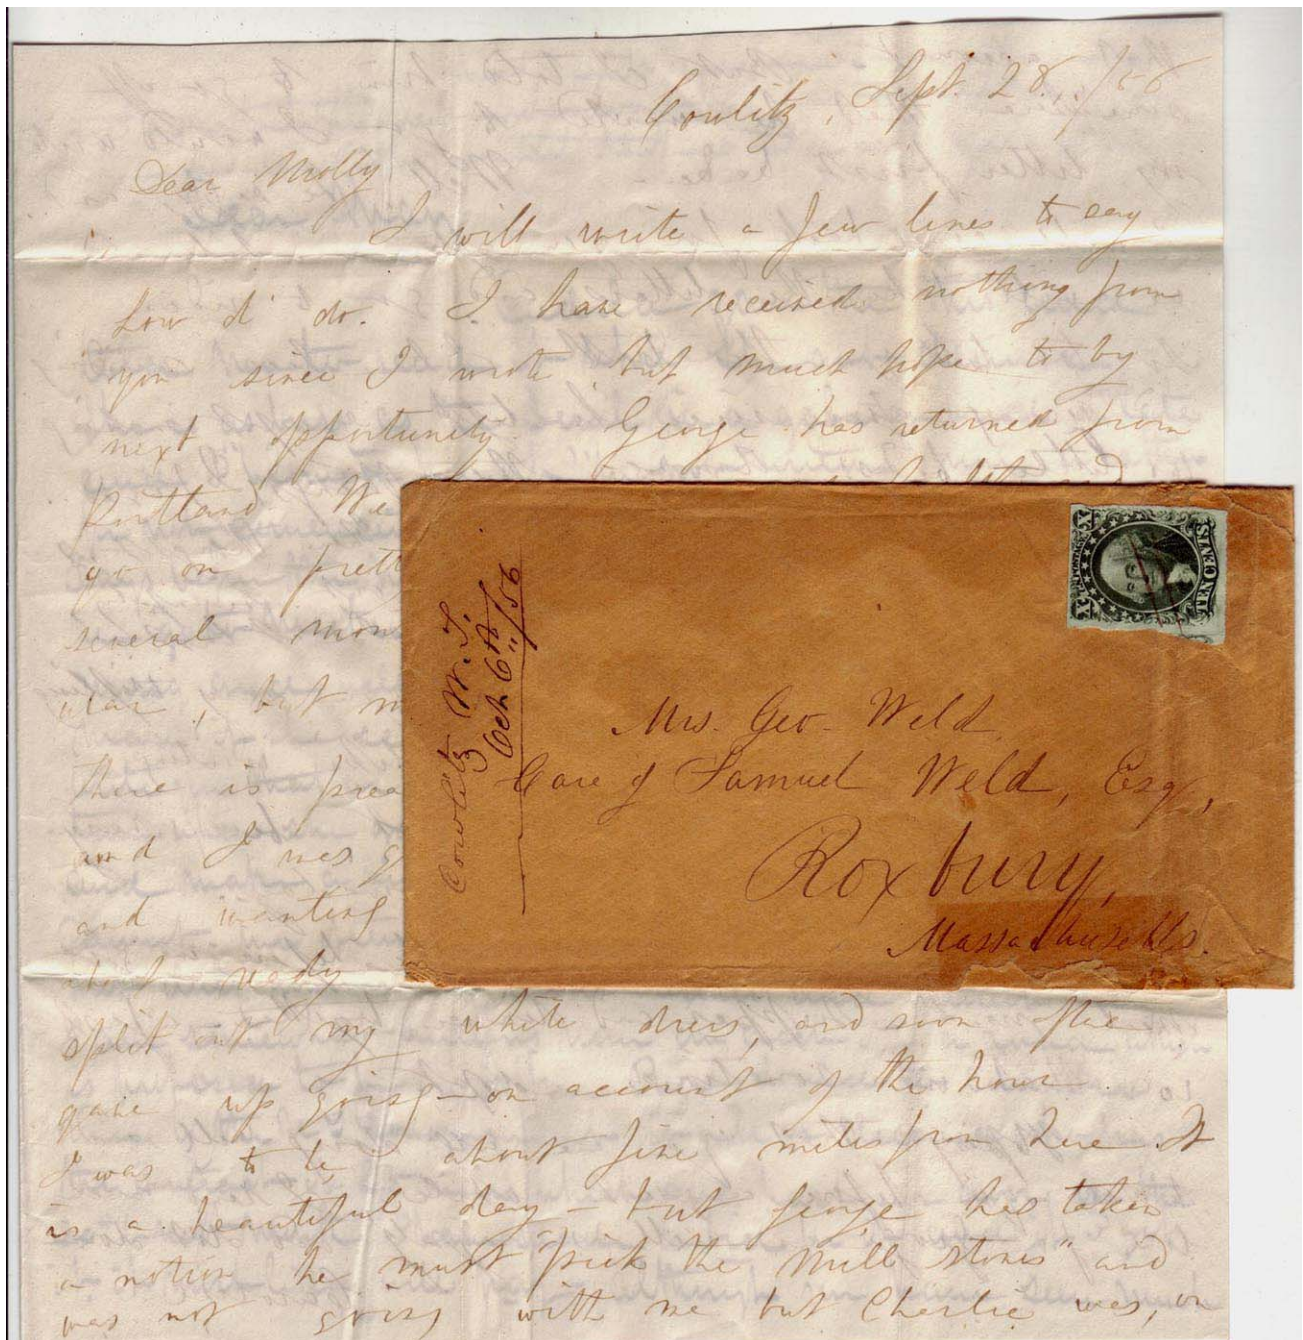 Cowlitz, Sept. 28. /56
Dear Molly
I will write a few lines to say
how d' do. I have received nothing from
you since I wrote, but much hope to by
next opportunity. George has returned from
Portland. We
go on prett
several mon
war, but m
there is prea
and I was g
and wanting
ready
split out my white dress, and soon after
gave up going - on account of the hour.
I was to be about five miles from here. It
is a beautiful day - but George has taken
a notion he must "pick the mill stones" and
was not going with me but Charlie was, on
Cowlitz W. T.
Oct. 6th /56
U.S. POSTAGE
TEN CENTS
X
X
Mrs. Geo. Weld,
Care of Samuel Weld, Esq.,
Roxbury,
Massachusetts.